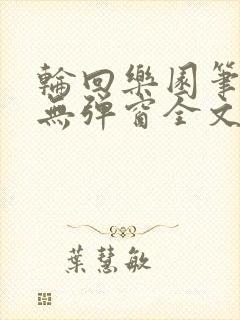 輪回樂園筆
無彈窗全文
葉慧敏